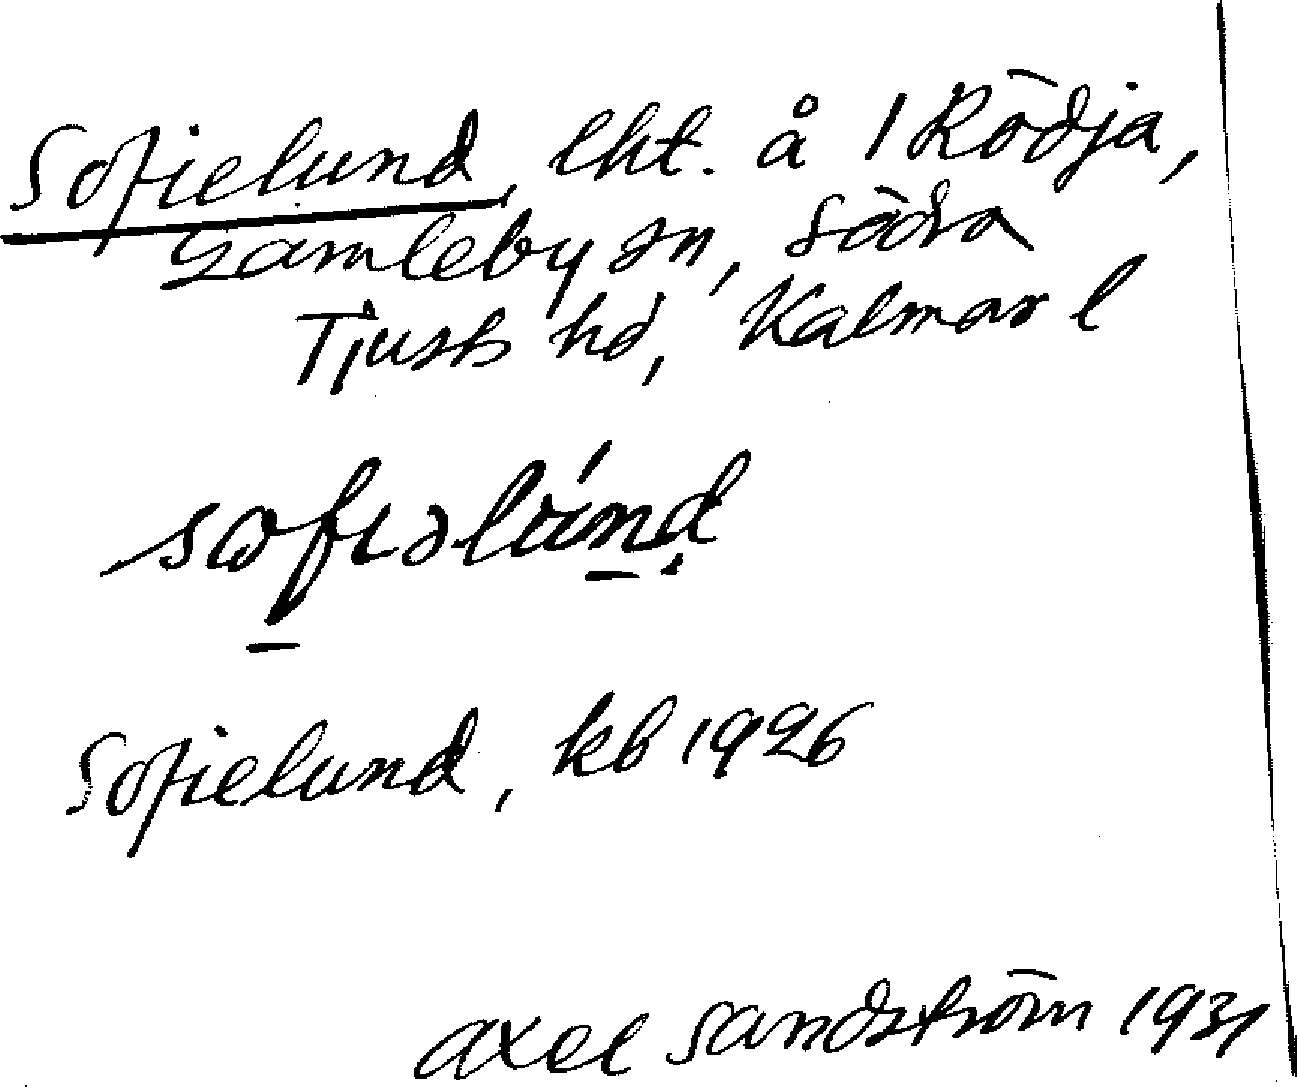 Sofielund, lht. å 1 Rödja,
Gamleby sn, Södra
Tjusts hd, Kalmar l
Sofielund, kb 1926
Axel Sandström 1931